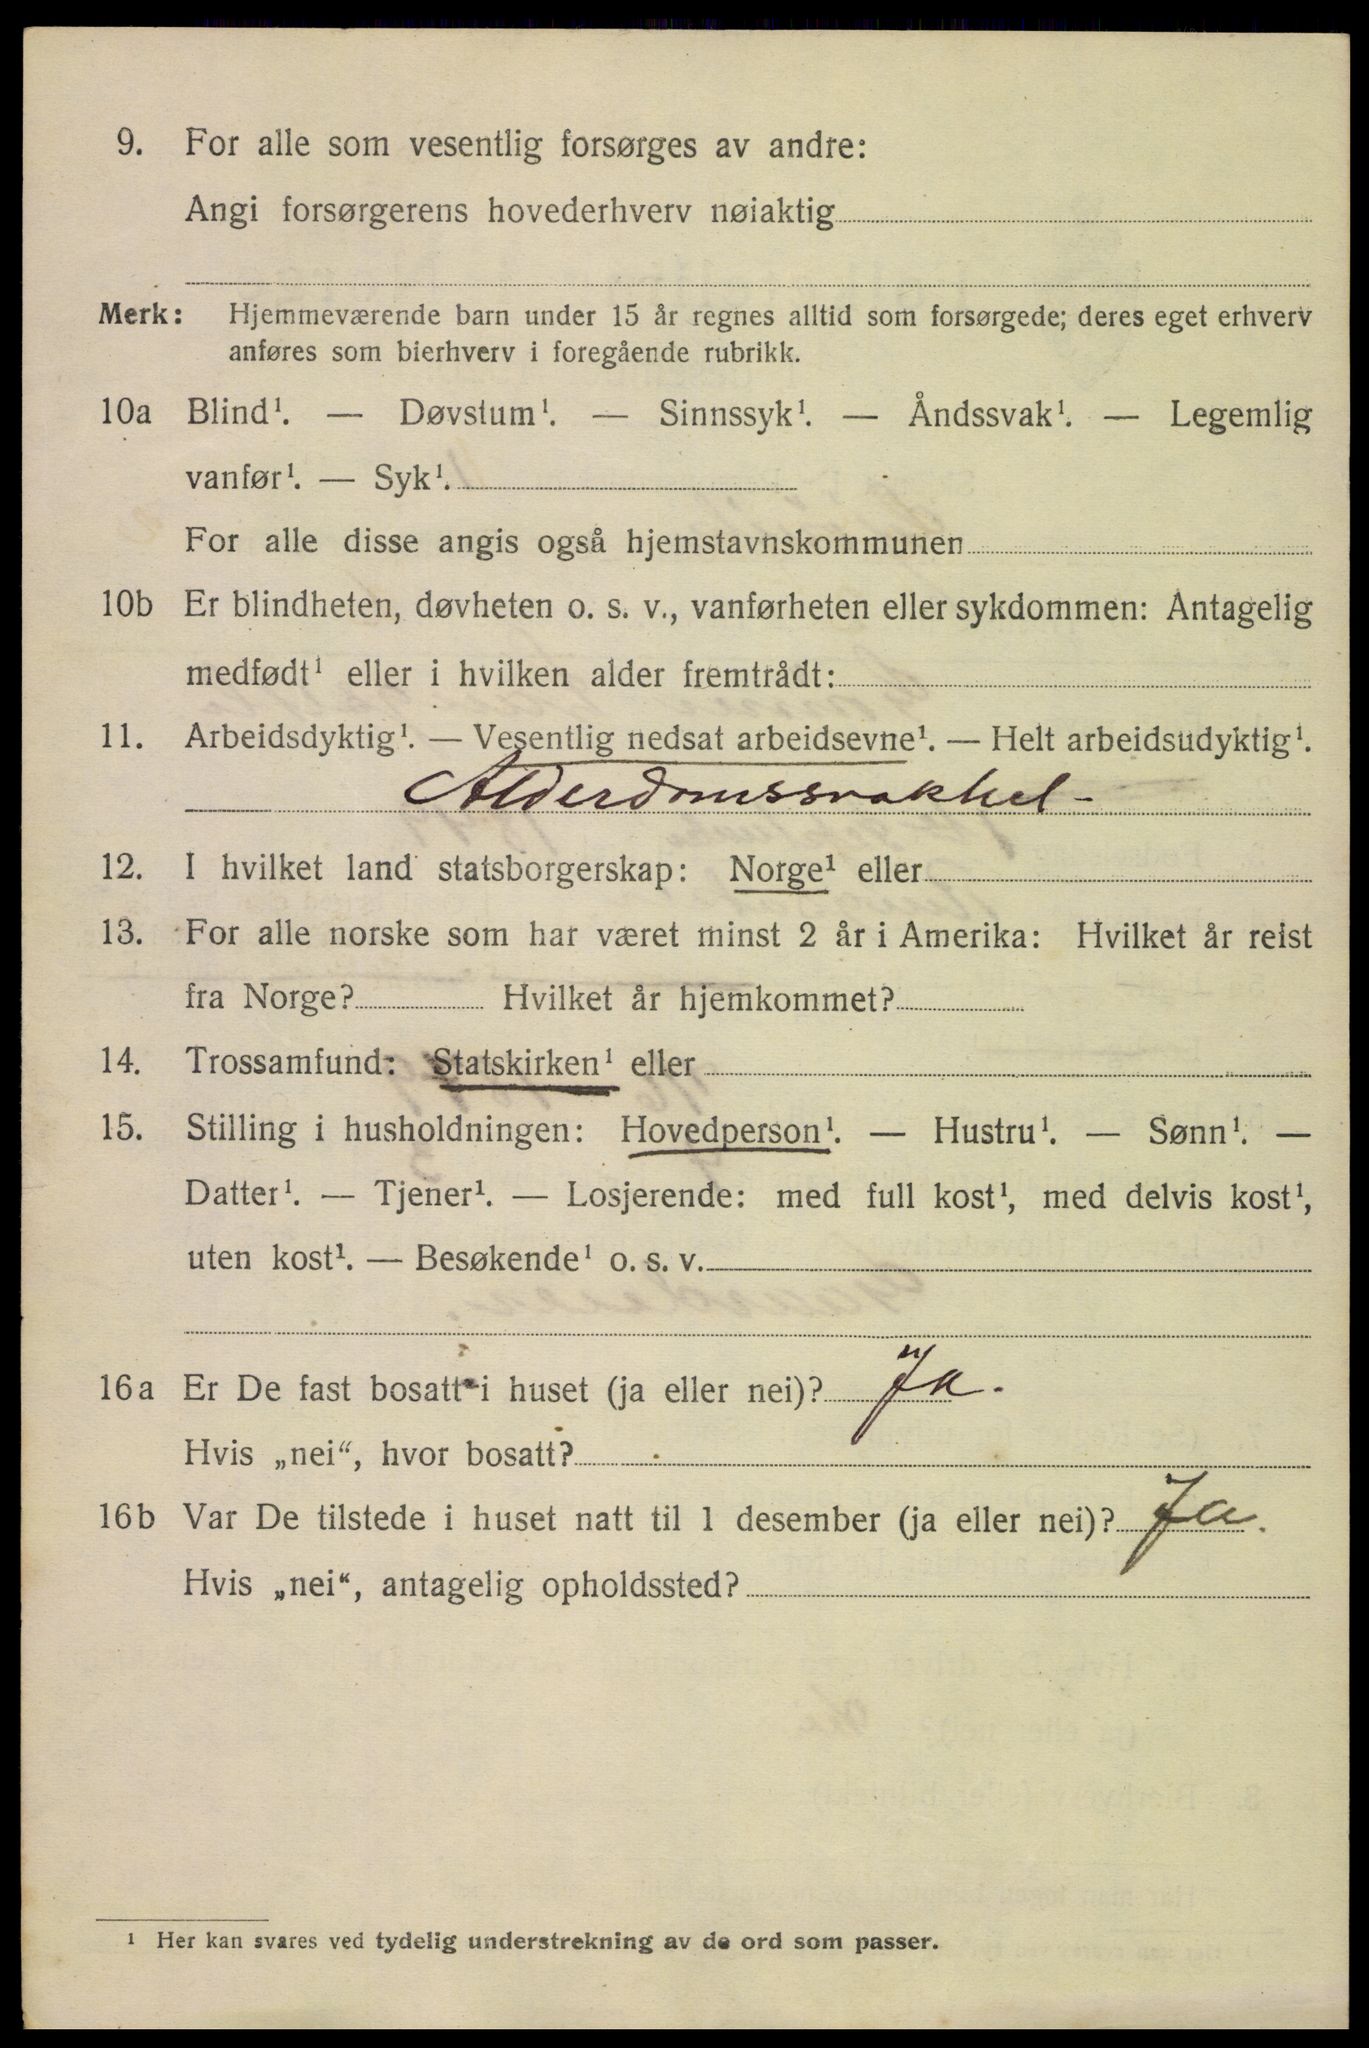 9. For alle som vesentlig forsørges av andre:
Angi forsørgerens hovederhverv nøiaktig
Merk: Hjemmeværende barn under 15 år regnes alltid som forsørgede; deres eget erhverv
anføres som bierhverv i foregående rubrikk.
10a Blind¹. — Døvstum¹. — Sinnssyk¹. — Åndssvak¹. — Legemlig
vanfør¹. — Syk¹.
For alle disse angis også hjemstavnskommunen
10b Er blindheten, døvheten o. s. v., vanførheten eller sykdommen: Antagelig
medfødt¹ eller i hvilken alder fremtrådt:
11. Arbeidsdyktig¹. — Vesentlig nedsat arbeidsevne¹. — Helt arbeidsudyktig¹.
Alderdomssvakhet -
12. I hvilket land statsborgerskap: Norge¹ eller
13. For alle norske som har været minst 2 år i Amerika: Hvilket år reist
fra Norge? Hvilket år hjemkommet?
14. Trossamfund: Statskirken¹ eller
15. Stilling i husholdningen: Hovedperson¹. — Hustru¹. — Sønn¹. —
Datter¹. — Tjener¹. — Losjerende: med full kost¹, med delvis kost¹,
uten kost¹. — Besøkende¹ o. s. v.
16a Er De fast bosatt i huset (ja eller nei)? Ja.
Hvis „nei“, hvor bosatt?
16b Var De tilstede i huset natt til 1 desember (ja eller nei)? Ja.
Hvis „nei“, antagelig opholdssted?
¹ Her kan svares ved tydelig understrekning av de ord som passer.